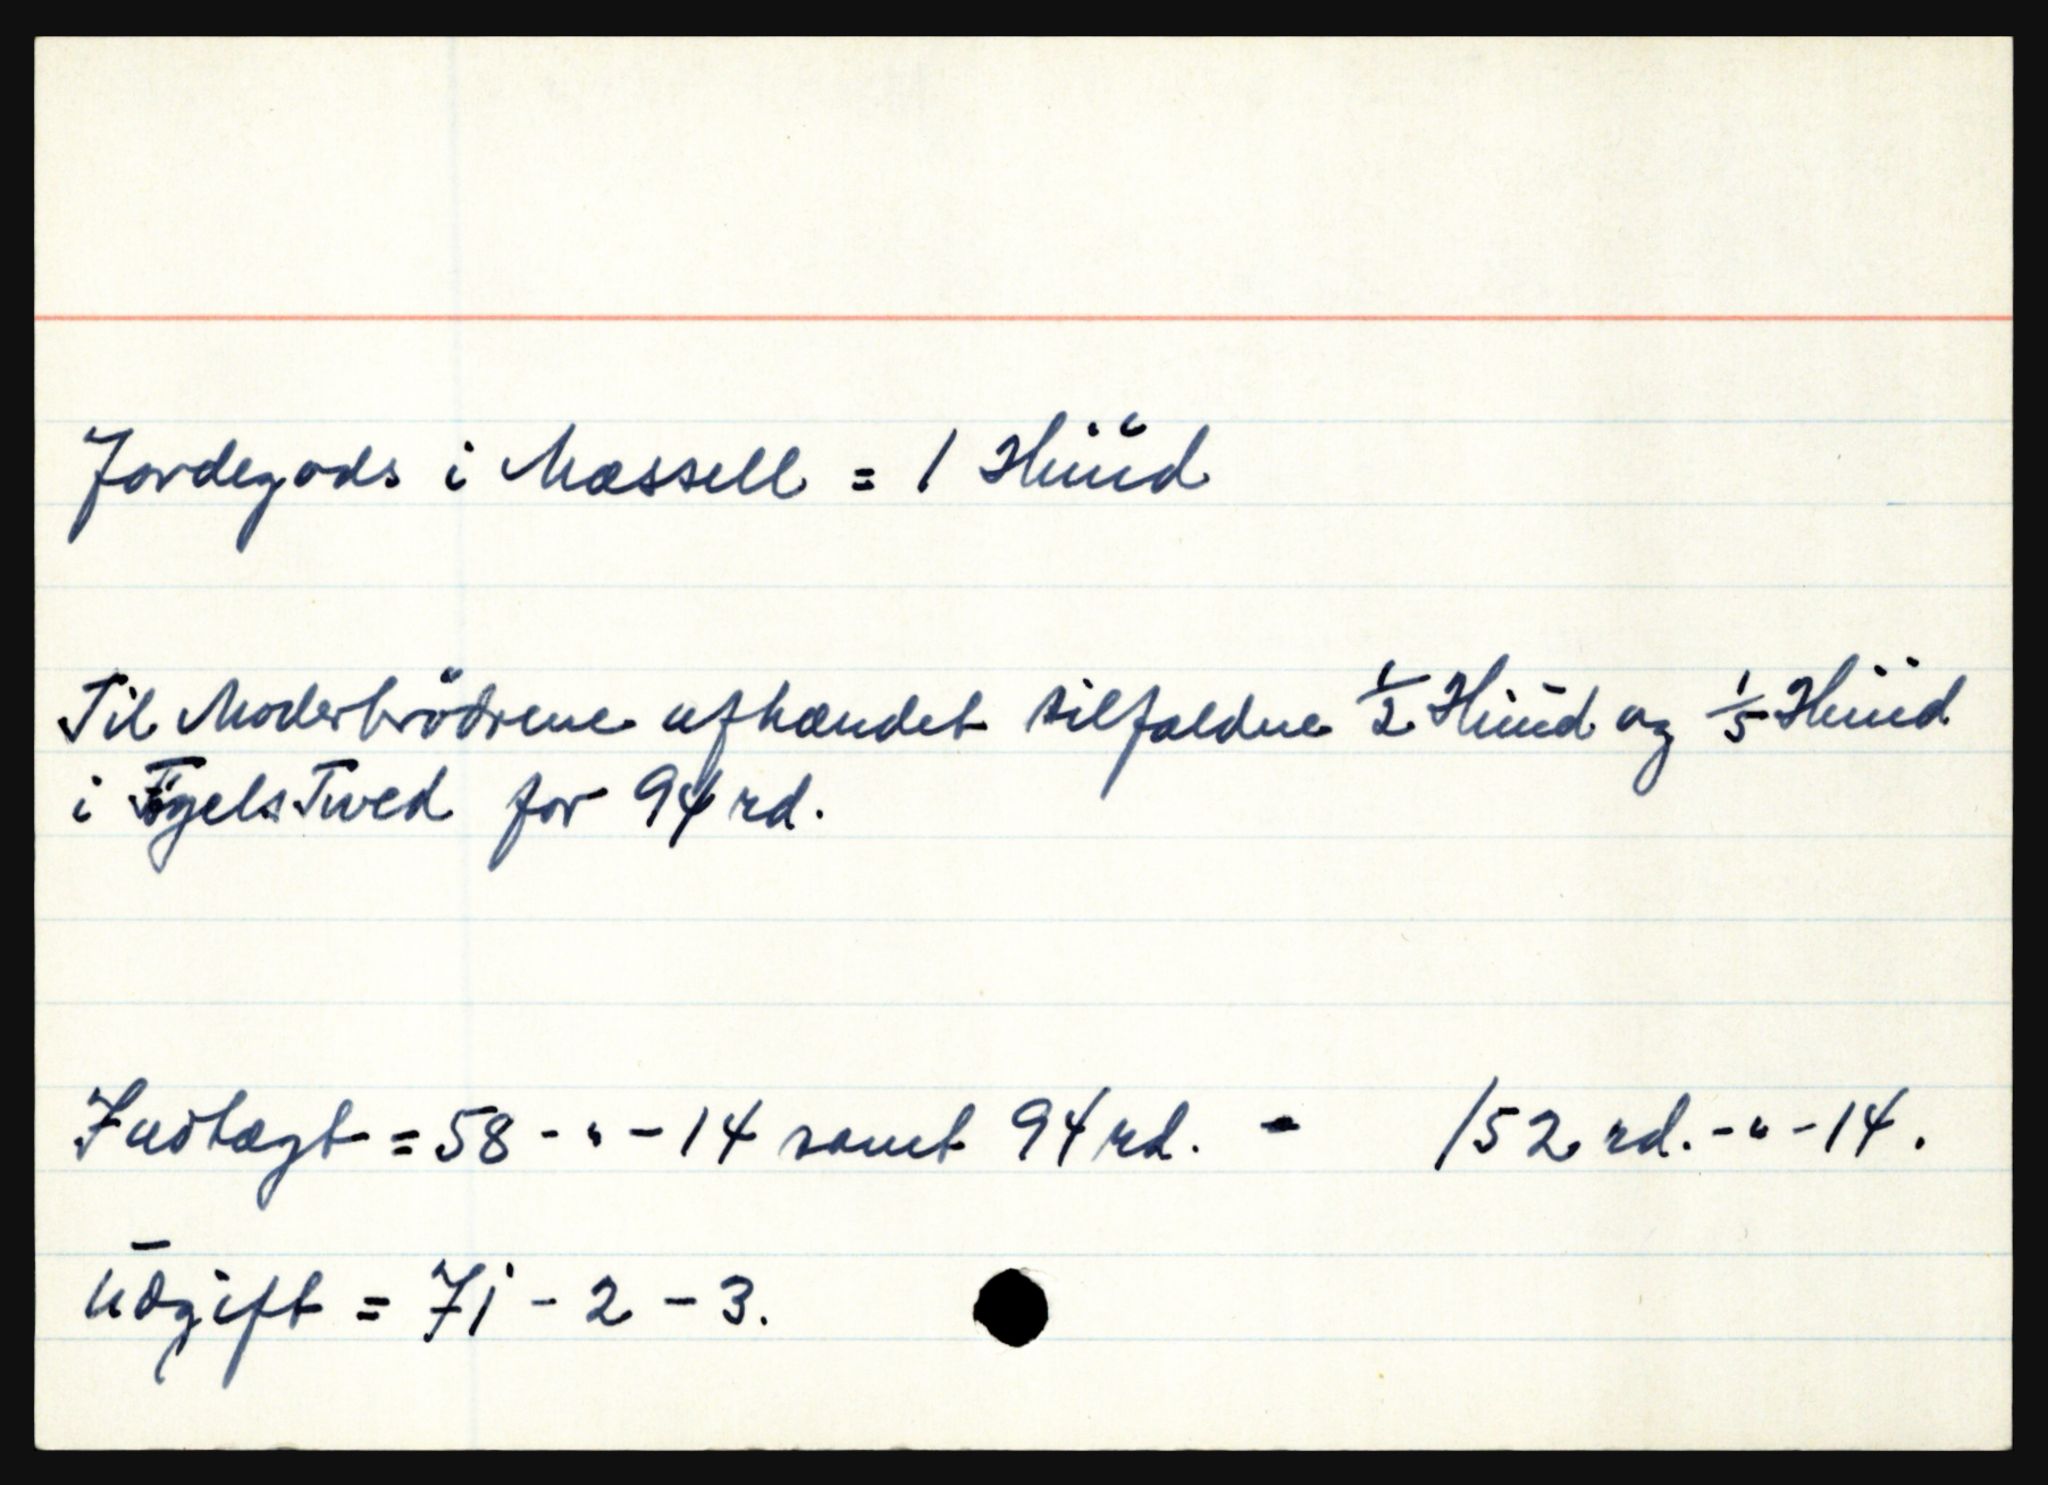 Jordegods i Mæssell = 1 Hüüd
Til Moderbrödrene afhændet tilfaldne 1/2 Hüüd og 1/5 Hüüd
i Tved for 94 rd.
Indtægt = 58 - " - 14 samt 94 rd. - 152 rd. - " - 14.
Udgift = 71 - 2 - 3.